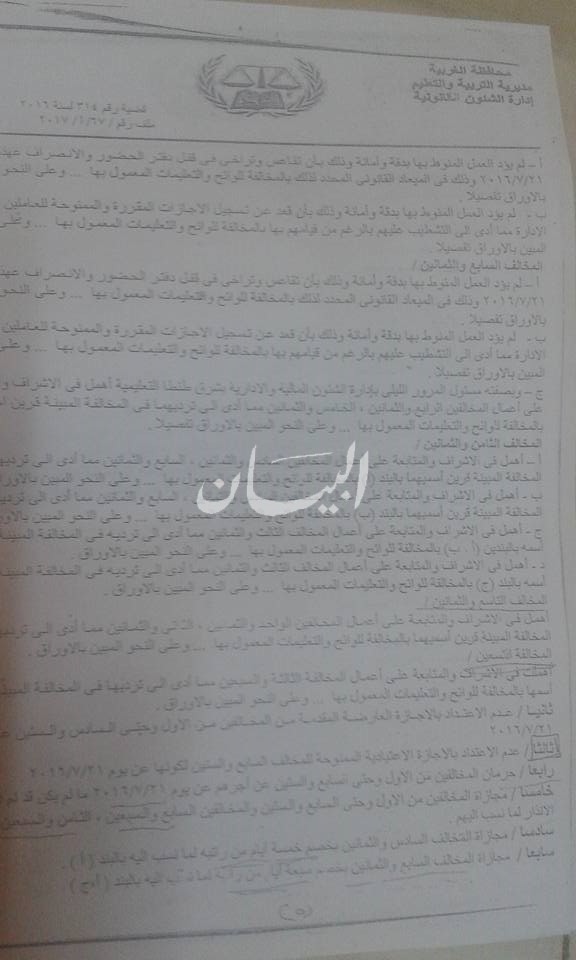 محافظة الغربية
مديرية التربية والتعليم
إدارة الشئون القانونية
قضية رقم ٣١٤ لسنة ٢٠١٦
ملف رقم / ١/٦٧ / ٢٠١٧
أ – لم يؤد العمل المنوط بها بدقة وأمانة وذلك بأن تقاعس وتراخى فى قفل دفتر الحضور والانصراف عهد
٢٠١٦/٧/٢١ وذلك فى الميعاد القانونى المحدد لذلك بالمخالفة للوائح والتعليمات المعمول بها ... وعلى النحو
بالأوراق تفصيلا .
ب - لم يؤد العمل المنوط بها بدقة وأمانة وذلك بأن قعد عن تسجيل الاجازات المقررة والممنوحة للعاملين
الادارة مما أدى الى التشطيب عليهم بالرغم من قيامهم بها بالمخالفة للوائح والتعليمات المعمول بها ... وعلى
المبين بالأوراق تفصيلا .
المخالف السابع والثمانين /
أ – لم يؤد العمل المنوط بها بدقة وأمانة وذلك بأن تقاعس وتراخى فى قفل دفتر الحضور والانصراف عهد
٢٠١٦/٧/٢١ وذلك فى الميعاد القانونى المحدد لذلك بالمخالفة للوائح والتعليمات المعمول بها ... وعلى النحو
بالأوراق تفصيلا .
ب - لم يؤد العمل المنوط بها بدقة وأمانة وذلك بأن قعد عن تسجيل الاجازات المقررة والممنوحة للعاملين
الادارة مما أدى الى التشطيب عليهم بالرغم من قيامهم بها بالمخالفة للوائح والتعليمات المعمول بها ... وعلى
المبين بالأوراق تفصيلا .
ج – وبصفته مسئول المرور الليلى بإدارة الشئون المالية والادارية بشرق طنطا التعليمية أهمل فى الاشراف
على أعمال المخالفين الرابع والثمانين ، الخامس والثمانين مما أدى الى ترديهما فى المخالفة المبينة قرين
بالمخالفة للوائح والتعليمات المعمول بها ... وعلى النحو المبين بالأوراق تفصيلا .
المخالف الثامن والثمانين /
أ – أهمل فى الاشراف والمتابعة على أعمال المخالفين السادس والثمانين ، السابع والثمانين مما أدى الى
المخالفة المبينة قرين أسميهما بالبند (أ) بالمخالفة للوائح والتعليمات المعمول بها ... وعلى النحو المبين بالأوراق
ب – أهمل فى الاشراف والمتابعة على والثمانين ، السابع والثمانين مما أدى
المخالفة المبينة قرين أسميهما بالبند (ب) بالمخالفة للوائح والتعليمات المعمول بها ... وعلى النحو المبين
ج – أهمل فى الاشراف والمتابعة على أعمال المخالف الثالث والثمانين مما أدى الى ترديه فى المخالفة المبينة
أسمه بالبندين (أ ، ب) بالمخالفة للوائح والتعليمات المعمول بها ... وعلى النحو المبين بالأوراق .
د – أهمل فى الاشراف والمتابعة على أعمال المخالف الثالث والثمانين مما أدى الى ترديه فى المخالفة المبينة
أسمه بالبند (ج) بالمخالفة للوائح والتعليمات المعمول بها ... وعلى النحو المبين بالأوراق .
المخالف التاسع والثمانين /
أهمل فى الاشراف والمتابعة على أعمال المخالفين الواحد والثمانين ، الثانى والثمانين مما أدى الى
المخالفة المبينة قرين أسميهما بالمخالفة للوائح والتعليمات المعمول بها ... وعلى النحو المبين بالأوراق .
المخالفة التسعين /
أهملت فى الاشراف والمتابعة على أعمال المخالفة الثالثة والسبعين مما أدى الى ترديها فى المخالفة
أسمها بالمخالفة للوائح والتعليمات المعمول بها ... وعلى النحو المبين بالأوراق .
ثانيا / عدم الاعتداد بالاجازة العارضة المقدمة من المخالفين من الاول وحتى السادس والستين
٢٠١٦/٧/٢١
ثالثا / عدم الاعتداد بالاجازة الاعتيادية الممنوحة للمخالف السابع والستين لكونها عن يوم ٢٠١٦/٧/٢١
رابعا / حرمان المخالفين من الاول وحتى السابع والستين عن أجرهم عن يوم ٢٠١٦/٧/٢١ ما لم يكن قد تم
خامسا / مجازاة المخالفين من الاول وحتى السابع والستين والمخالفين السابع والسبعين ، الثامن والسبعين
الانذار لما نسب اليهم .
سادسا / مجازاة المخالف السادس والثمانين بخصم خمسة أيام من راتبه لما نسب اليه بالبند (أ) .
سابعا / مجازاة المخالف السابع والثمانين بخصم سبعة أيام من راتبه لما نسب اليه بالبند (أ،ج)
البيان